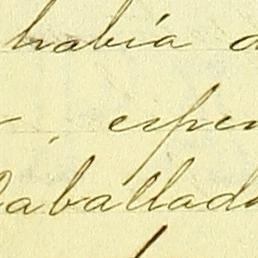 había
, espe
Caballada